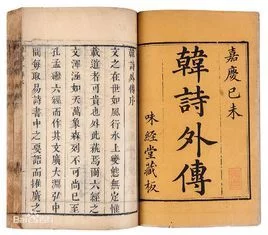 嘉慶己未
韓詩外傳
味經堂藏板
韓詩外傳序
文之在世如風行水上變態無定惟
載道者可貴也外此焉爾六經之
文渾涵如天萬彙森列不可尚已至
孔孟六經而作其文廣大淵弘中
間每取易詩書中之要語而推廣之
Bai百科